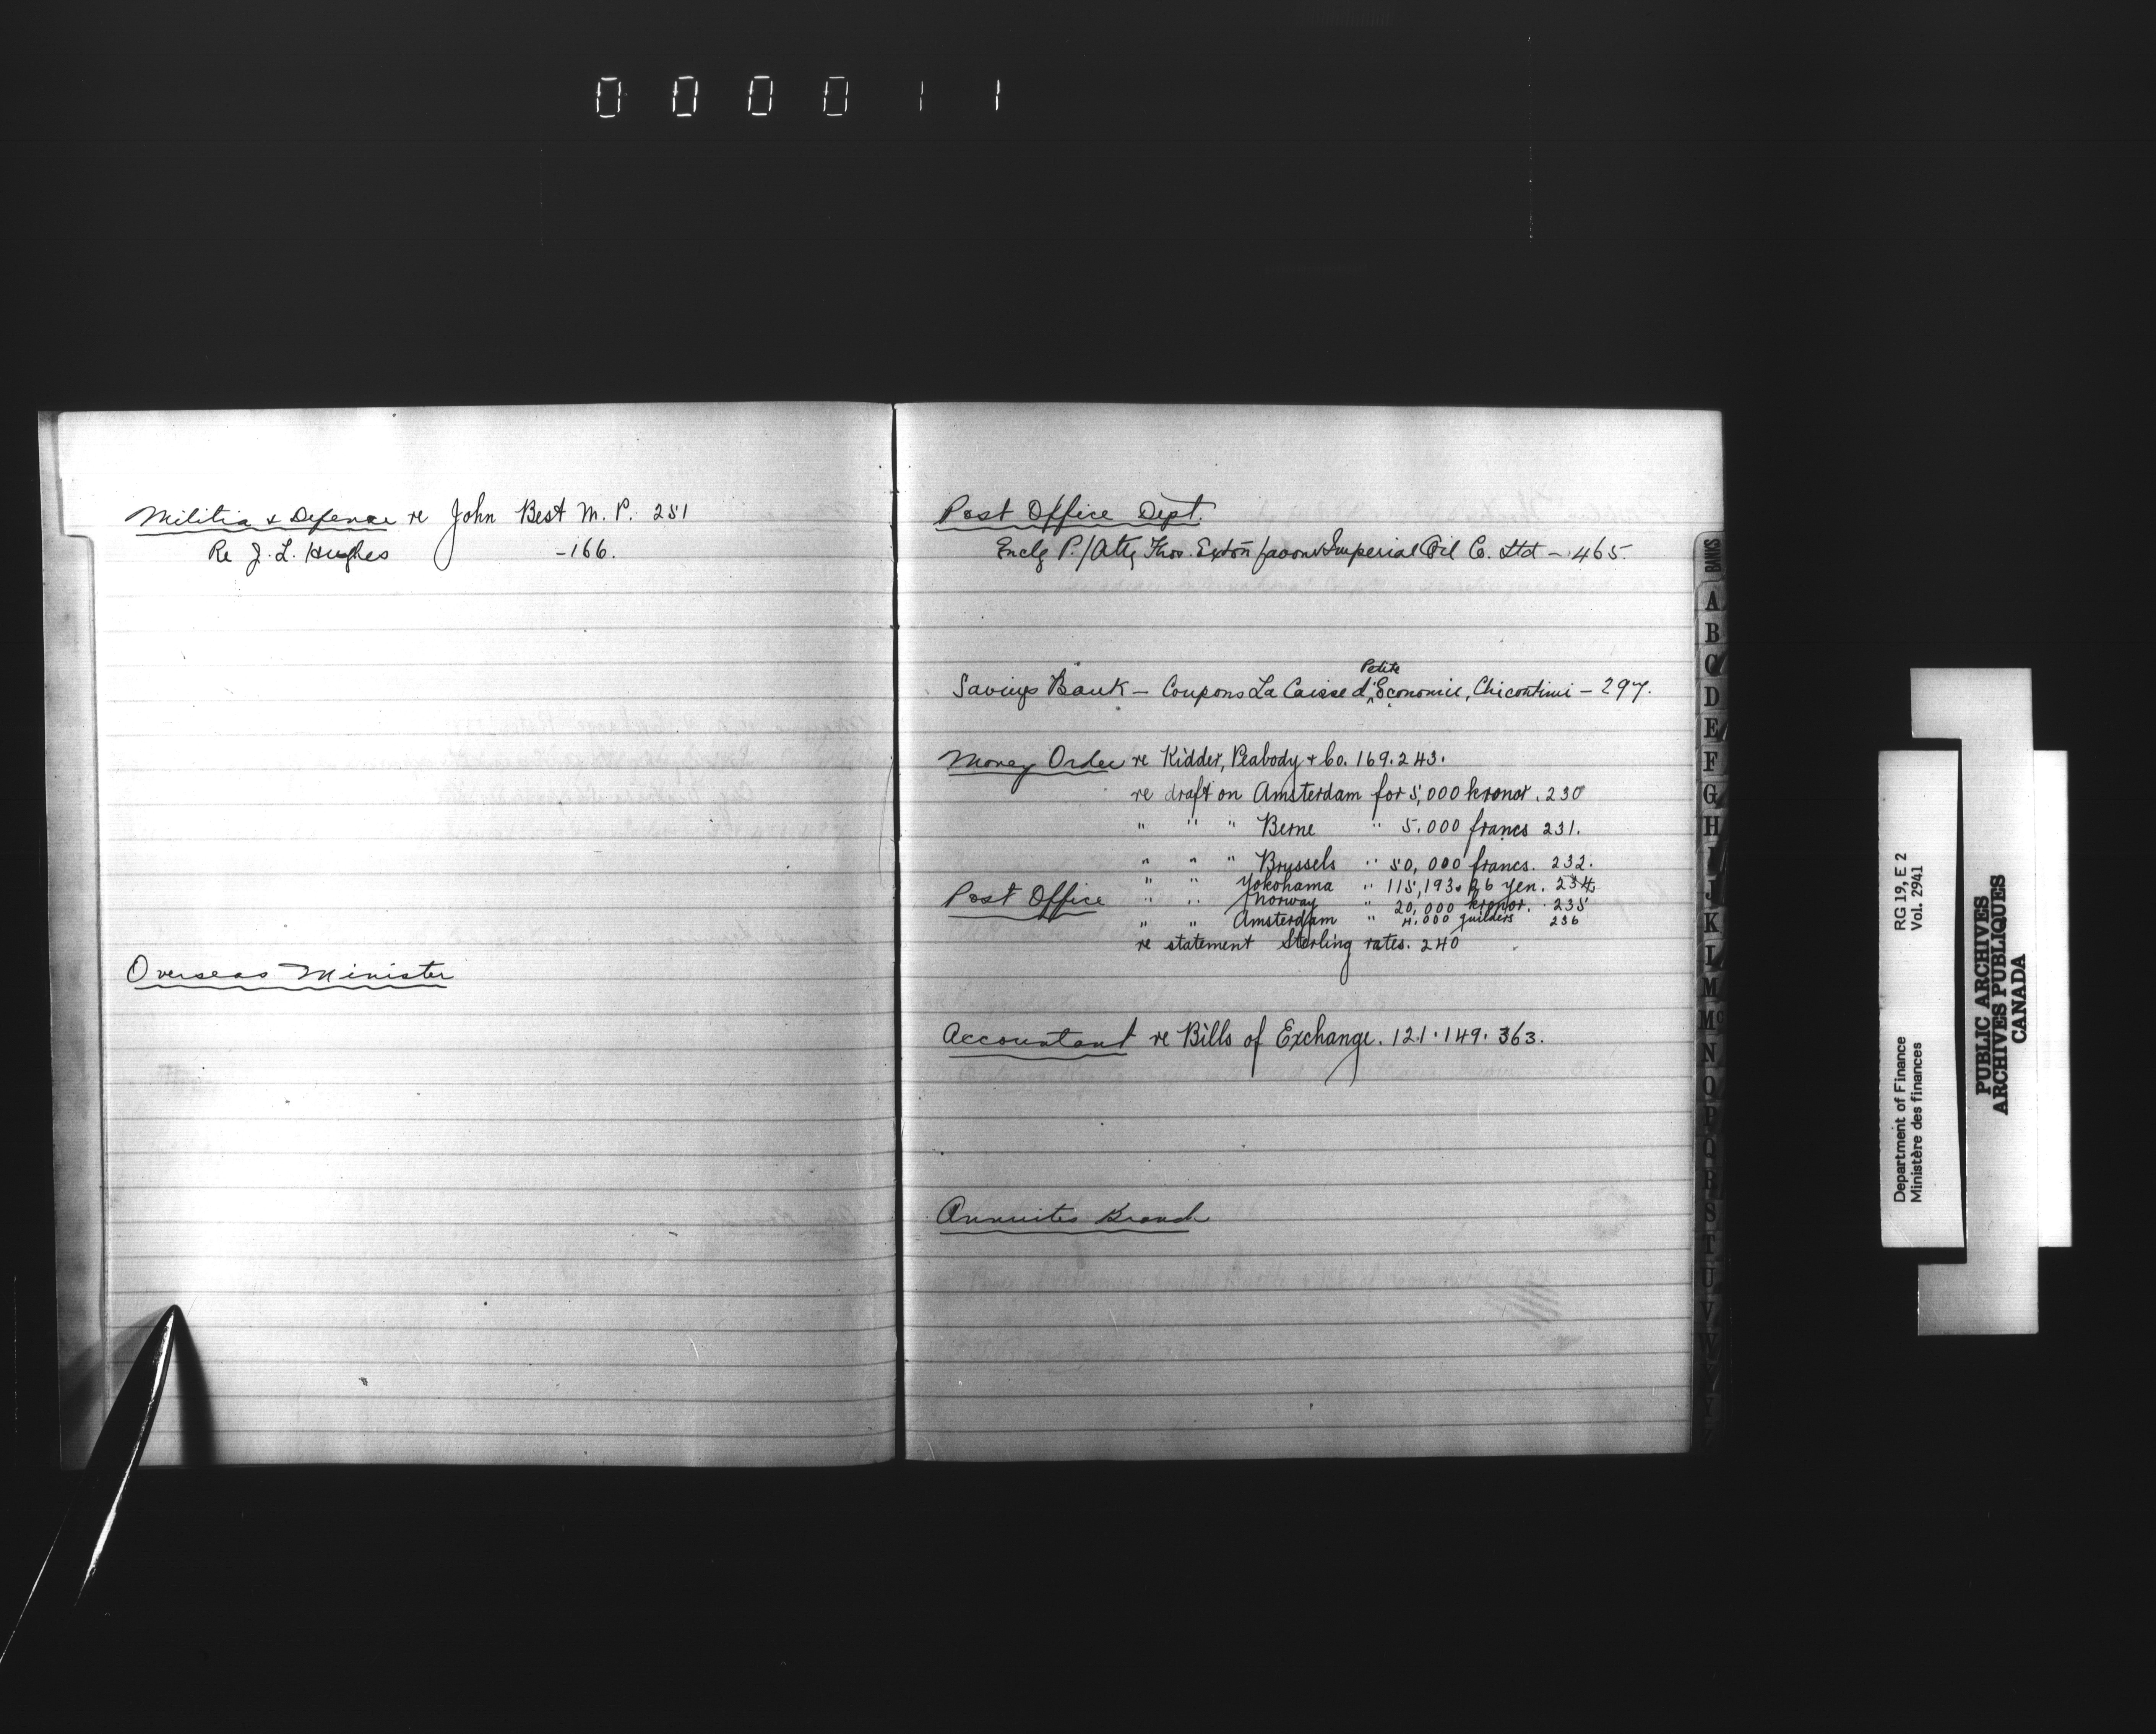 000011
Militia & Defence re John Best M. P. 251
Re J. L. Hughes -166.
Overseas Minister
Post Office Dept.
Enclg P./Atty Thos. Exton favour Imperial Oil Co. Ltd - 465.
Petite
Savings Bank - Coupons La Caisse d'^Economie, Chicoutimi - 297.
Money Order re Kidder, Peabody & Co. 169. 243.
re draft on Amsterdam for 5,000 kronor. 230
" " " Berne " 5.000 francs 231.
" " " Brussels " 50,000 francs. 232.
" " Yokohama " 115,193.26 yen. 234.
Post Office " " Norway " 20,000 kronor. 235
" " Amsterdam " 4.000 guilders 236
re statement Sterling rates. 240
Accountant re Bills of Exchange. 121. 149. 363.
Annuites Branch
BANKS
A
B
C
D
E
F
G
H
I
J
K
L
M
Mc
N
O
P
Q
R
S
T
U
V
W
Y
RG 19, E 2
Vol. 2941
Department of Finance
Ministère des finances
PUBLIC ARCHIVES
ARCHIVES PUBLIQUES
CANADA